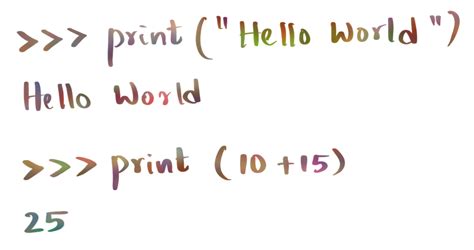 >>> print ("Hello World")
Hello World
>>> print (10 +15)
25